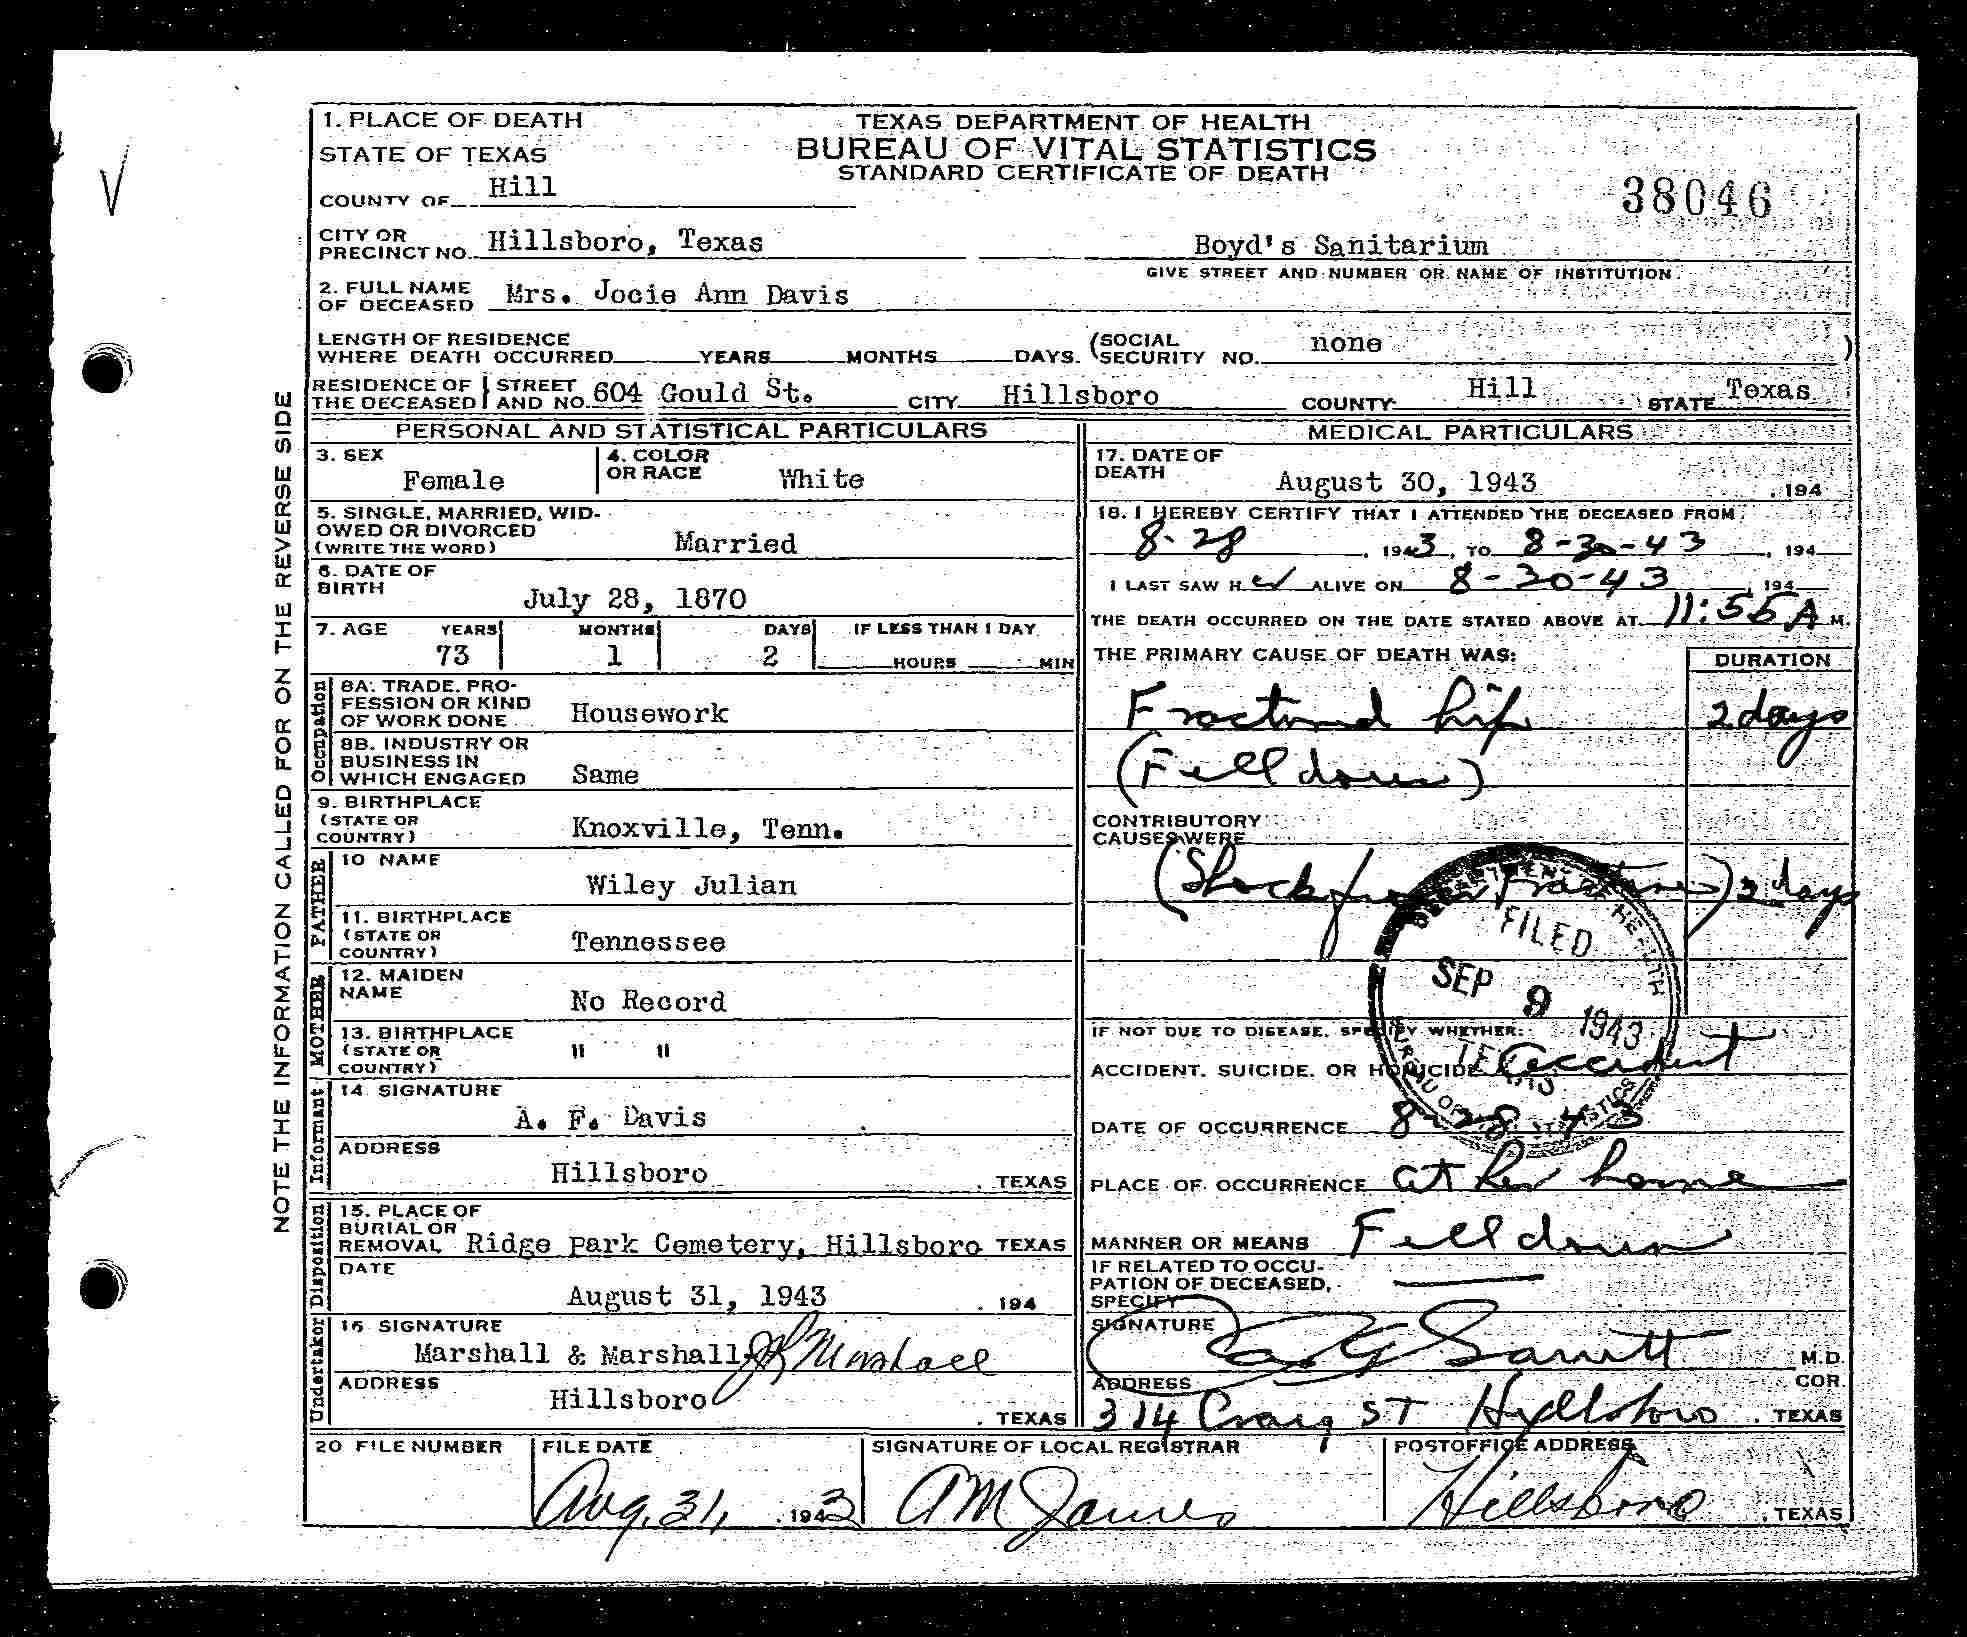 1. PLACE OF DEATH
STATE OF TEXAS
COUNTY OF Hill
TEXAS DEPARTMENT OF HEALTH
BUREAU OF VITAL STATISTICS
STANDARD CERTIFICATE OF DEATH
38046
CITY OR PRECINCT NO. Hillsboro, Texas Boyd's Sanitarium
GIVE STREET AND NUMBER OR NAME OF INSTITUTION.
2. FULL NAME OF DECEASED Mrs. Jocie Ann Davis
LENGTH OF RESIDENCE
WHERE DEATH OCCURRED YEARS MONTHS DAYS. (SOCIAL SECURITY NO. none )
RESIDENCE OF THE DECEASED STREET AND NO. 604 Gould St. CITY Hillsboro COUNTY Hill STATE Texas
NOTE THE INFORMATION CALLED FOR ON THE REVERSE SIDE
PERSONAL AND STATISTICAL PARTICULARS
3. SEX Female
4. COLOR OR RACE White
5. SINGLE, MARRIED, WID-
OWED OR DIVORCED
(WRITE THE WORD) Married
6. DATE OF BIRTH July 28, 1870
7. AGE YEARS MONTHS DAYS IF LESS THAN 1 DAY
73 1 2 HOURS MIN
Occupation
8A. TRADE, PRO-
FESSION OR KIND
OF WORK DONE Housework
8B. INDUSTRY OR
BUSINESS IN
WHICH ENGAGED Same
9. BIRTHPLACE
(STATE OR
COUNTRY) Knoxville, Tenn.
FATHER
10 NAME
Wiley Julian
11. BIRTHPLACE
(STATE OR
COUNTRY) Tennessee
MOTHER
12. MAIDEN
NAME No Record
13. BIRTHPLACE
(STATE OR
COUNTRY) " "
Informant
14 SIGNATURE
A. F. Davis
ADDRESS
Hillsboro , TEXAS
Disposition
15. PLACE OF
BURIAL OR
REMOVAL Ridge park Cemetery, Hillsboro TEXAS
DATE
August 31, 1943 , 194
Undertaker
16 SIGNATURE
Marshall & Marshall Marshall
ADDRESS
Hillsboro , TEXAS
MEDICAL PARTICULARS
17. DATE OF
DEATH August 30, 1943 , 194
18. I HEREBY CERTIFY THAT I ATTENDED THE DECEASED FROM
8-28 , 1943, TO 8-30-43 , 194
I LAST SAW Her ALIVE ON 8-30-43 , 194
THE DEATH OCCURRED ON THE DATE STATED ABOVE AT 11:55 A M.
THE PRIMARY CAUSE OF DEATH WAS: DURATION
Fractured hip 2 days
(Fell down)
CONTRIBUTORY
CAUSES WERE
(Shock from Fracture) 2 days
DEPARTMENT OF HEALTH
FILED
SEP 9 1943
TEXAS
BUREAU OF VITAL STATISTICS
IF NOT DUE TO DISEASE, SPECIFY WHETHER:
ACCIDENT, SUICIDE, OR HOMICIDE Accident
DATE OF OCCURRENCE 8-28-43
PLACE OF OCCURRENCE at her home
MANNER OR MEANS Fell down
IF RELATED TO OCCU-
PATION OF DECEASED,
SPECIFY
SIGNATURE
M.D.
COR.
ADDRESS
314 Craig ST Hillsboro , TEXAS
20 FILE NUMBER
FILE DATE
Aug, 31, , 1943
SIGNATURE OF LOCAL REGISTRAR
AM James
POSTOFFICE ADDRESS
Hillsboro , TEXAS